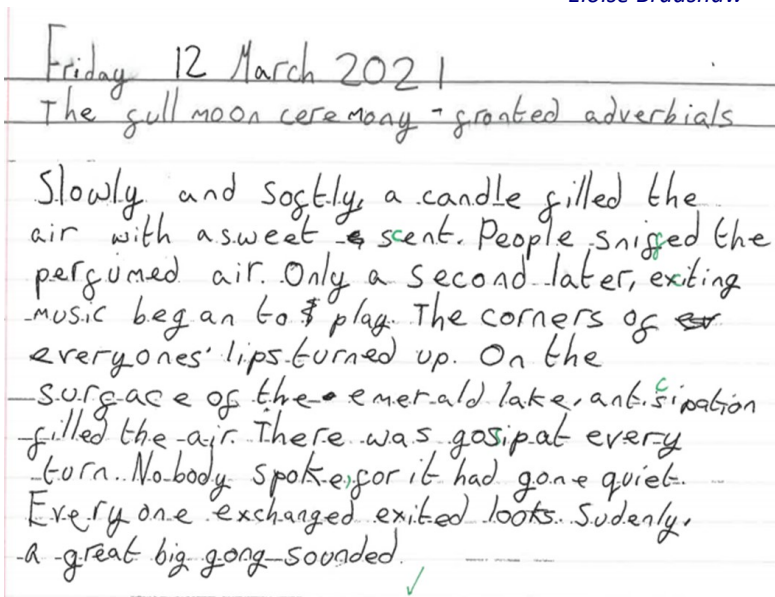 Eloise Bradshaw
Friday 12 March 2021
The full moon ceremony - fronted adverbials
Slowly and softly, a candle filled the
air with a sweet scent. People sniffed the
perfumed air. Only a second later, exciting
music began to play. The corners of
everyones' lips turned up. On the
surface of the emerald lake, anticipation
filled the air. There was gosip at every
turn. Nobody spoke, for it had gone quiet.
Everyone exchanged exited looks. Sudenly,
a great big gong sounded.